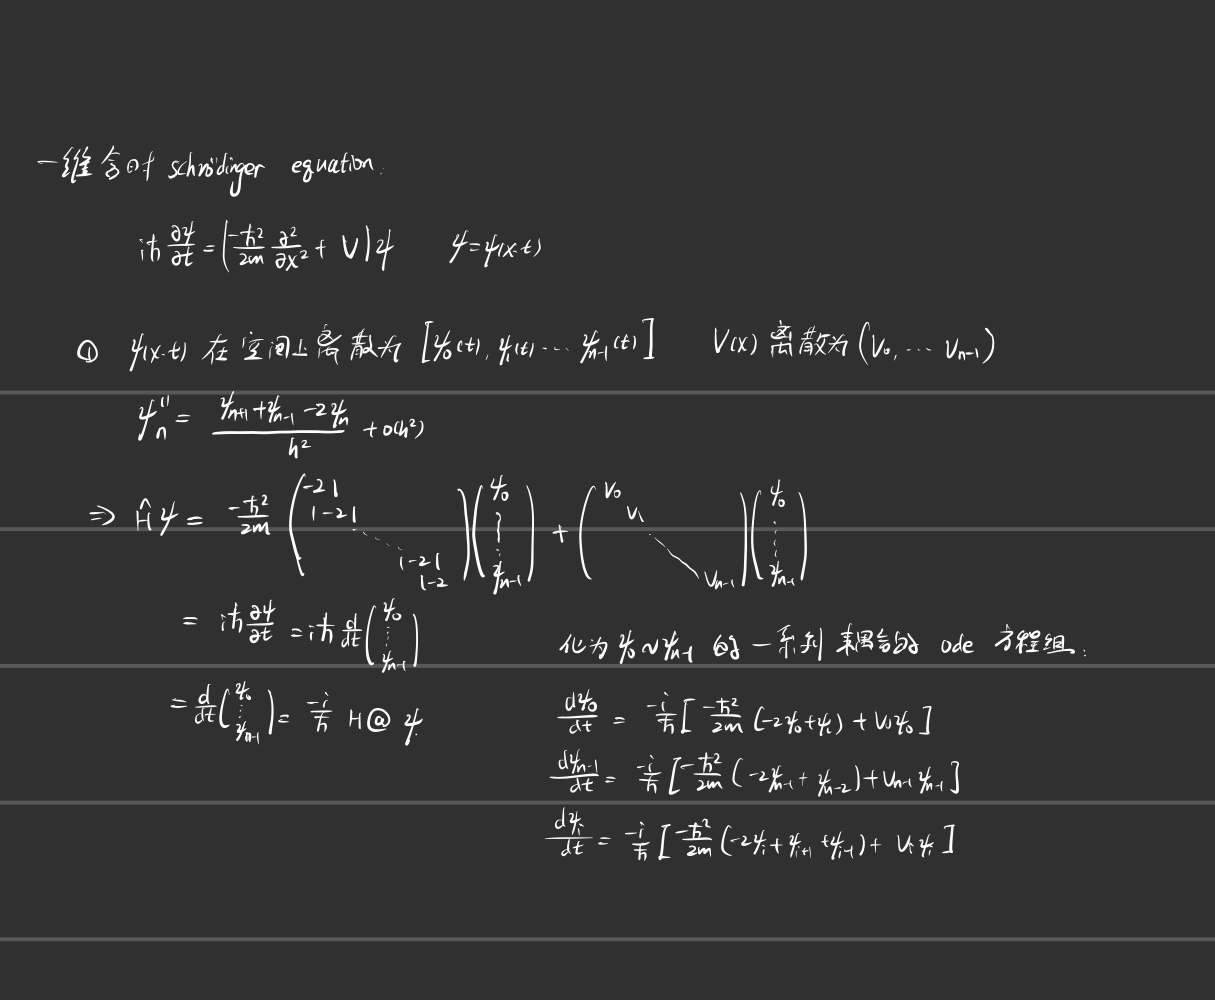 一维含时 schrödinger equation.
iħ ∂ψ/∂t = (-ħ²/2m ∂²/∂x² + V)ψ ψ=ψ(x·t)
① ψ(x·t) 在空间上离散为 [ψ₀(t), ψ₁(t) ··· ψₙ₋₁(t)] V(x) 离散为 (V₀, ··· Vₙ₋₁)
ψₙ'' = (ψₙ₊₁+ψₙ₋₁-2ψₙ)/h² + o(h²)
⇒ Ĥψ = -ħ²/2m (-2 1 1 -2 1 ··· 1 -2 1 1 -2)(ψ₀ ⋮ ψₙ₋₁) + (V₀ V₁ ⋱ Vₙ₋₁)(ψ₀ ⋮ ψₙ₋₁)
= iħ ∂ψ/∂t = iħ d/dt (ψ₀ ⋮ ψₙ₋₁)
= d/dt (ψ₀ ⋮ ψₙ₋₁) = -i/ħ H@ψ.
化为 ψ₀~ψₙ₋₁ 的一系列耦合的 ode 方程组.
dψ₀/dt = -i/ħ [-ħ²/2m (-2ψ₀+ψ₁) + V₀ψ₀]
dψₙ₋₁/dt = -i/ħ [-ħ²/2m (-2ψₙ₋₁+ψₙ₋₂)+Vₙ₋₁ψₙ₋₁]
dψᵢ/dt = -i/ħ [-ħ²/2m (-2ψᵢ+ψᵢ₊₁+ψᵢ₋₁)+ Vᵢψᵢ]